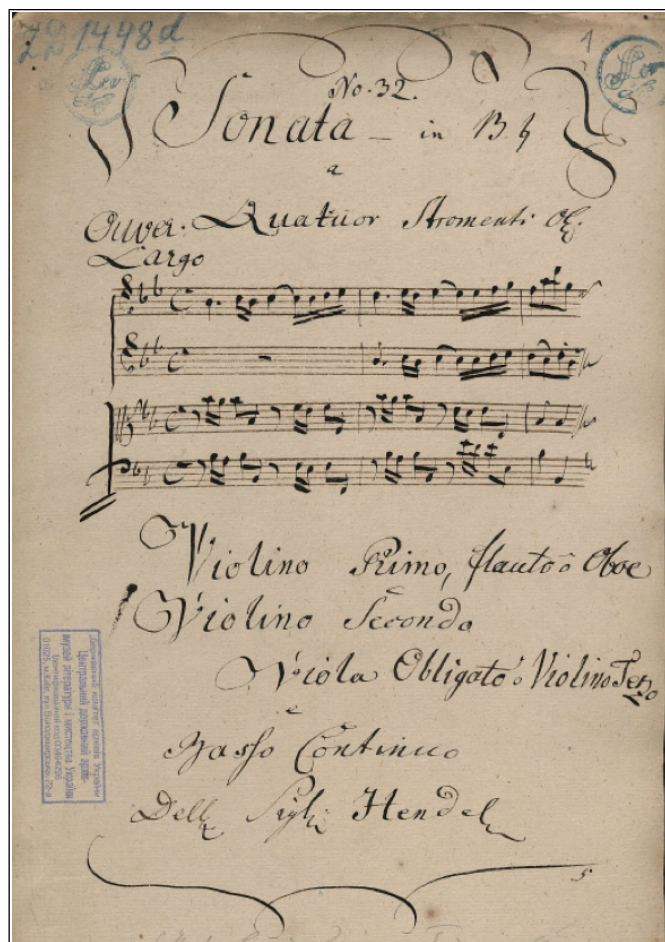 ZD 1448d
1
No. 32.
Sonata in B♭
a
Ouver. Quatuor Stromenti Obl:
Largo
Violino Primo, flauto ô Oboe
Violino Secondo
Viola Obligato ô Violino Terzo
e
Basso Continuo
Dell Sigl: Hendel
5